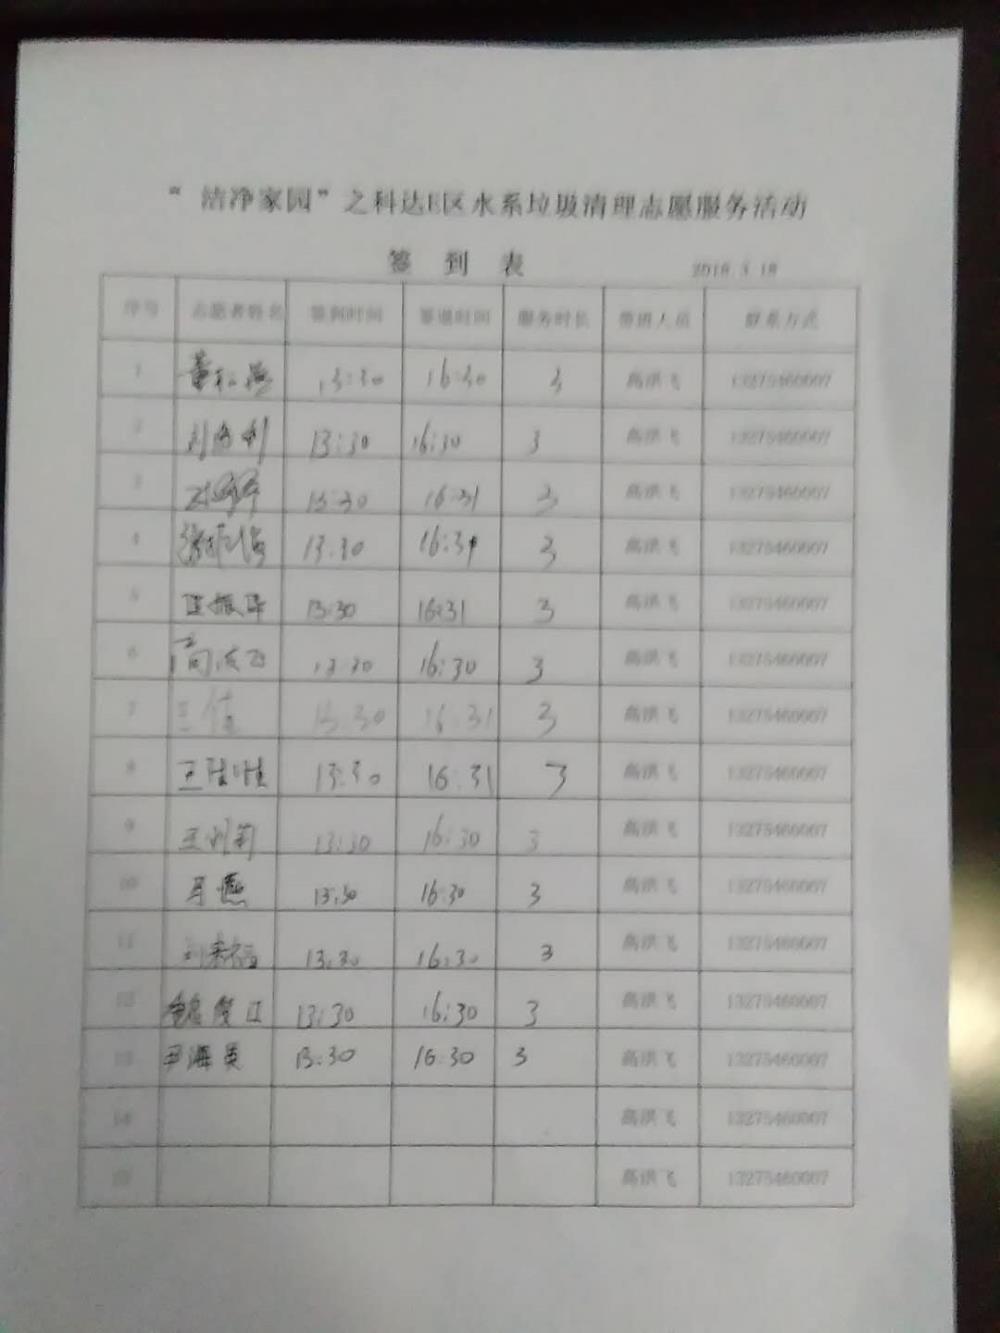 “洁净家园”之科达E区水系垃圾清理志愿服务活动
签 到 表 2018.3.18
序号 志愿者姓名 签到时间 签退时间 服务时长 带班人员 联系方式
1 13:30 16:30 3 高洪飞 13275460007
2 13:30 16:30 3 高洪飞 13275460007
3 13:30 16:31 3 高洪飞 13275460007
4 13:30 16:31 3 高洪飞 13275460007
5 13:30 16:31 3 高洪飞 13275460007
6 13:30 16:30 3 高洪飞 13275460007
7 13:30 16:31 3 高洪飞 13275460007
8 13:30 16:31 3 高洪飞 13275460007
9 13:30 16:30 3 高洪飞 13275460007
10 13:30 16:30 3 高洪飞 13275460007
11 刘来福 13:30 16:30 3 高洪飞 13275460007
12 13:30 16:30 3 高洪飞 13275460007
13 尹海英 13:30 16:30 3 高洪飞 13275460007
14 高洪飞 13275460007
15 高洪飞 13275460007